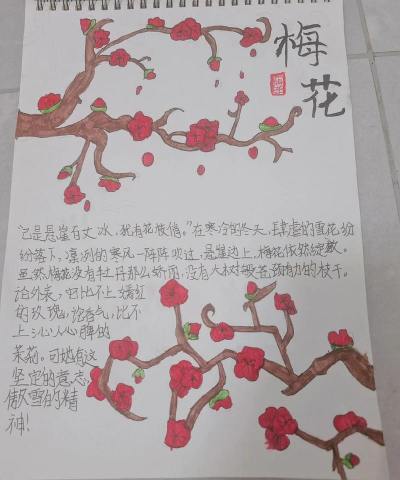 梅花
"已是悬崖百丈冰，犹有花枝俏。"在寒冷的冬天，肆虐的雪花纷
纷落下，凛冽的寒风一阵阵吹过，悬崖边上，梅花依然绽放。
虽然梅花没有牡丹那么娇雨，没有大树被苍劲有力的枝干。
论外表，它比不上嫣红
的玫瑰，论香气，比不
上沁人心脾的
茉莉。可她有这
坚定的意志，
傲雪的精
神！